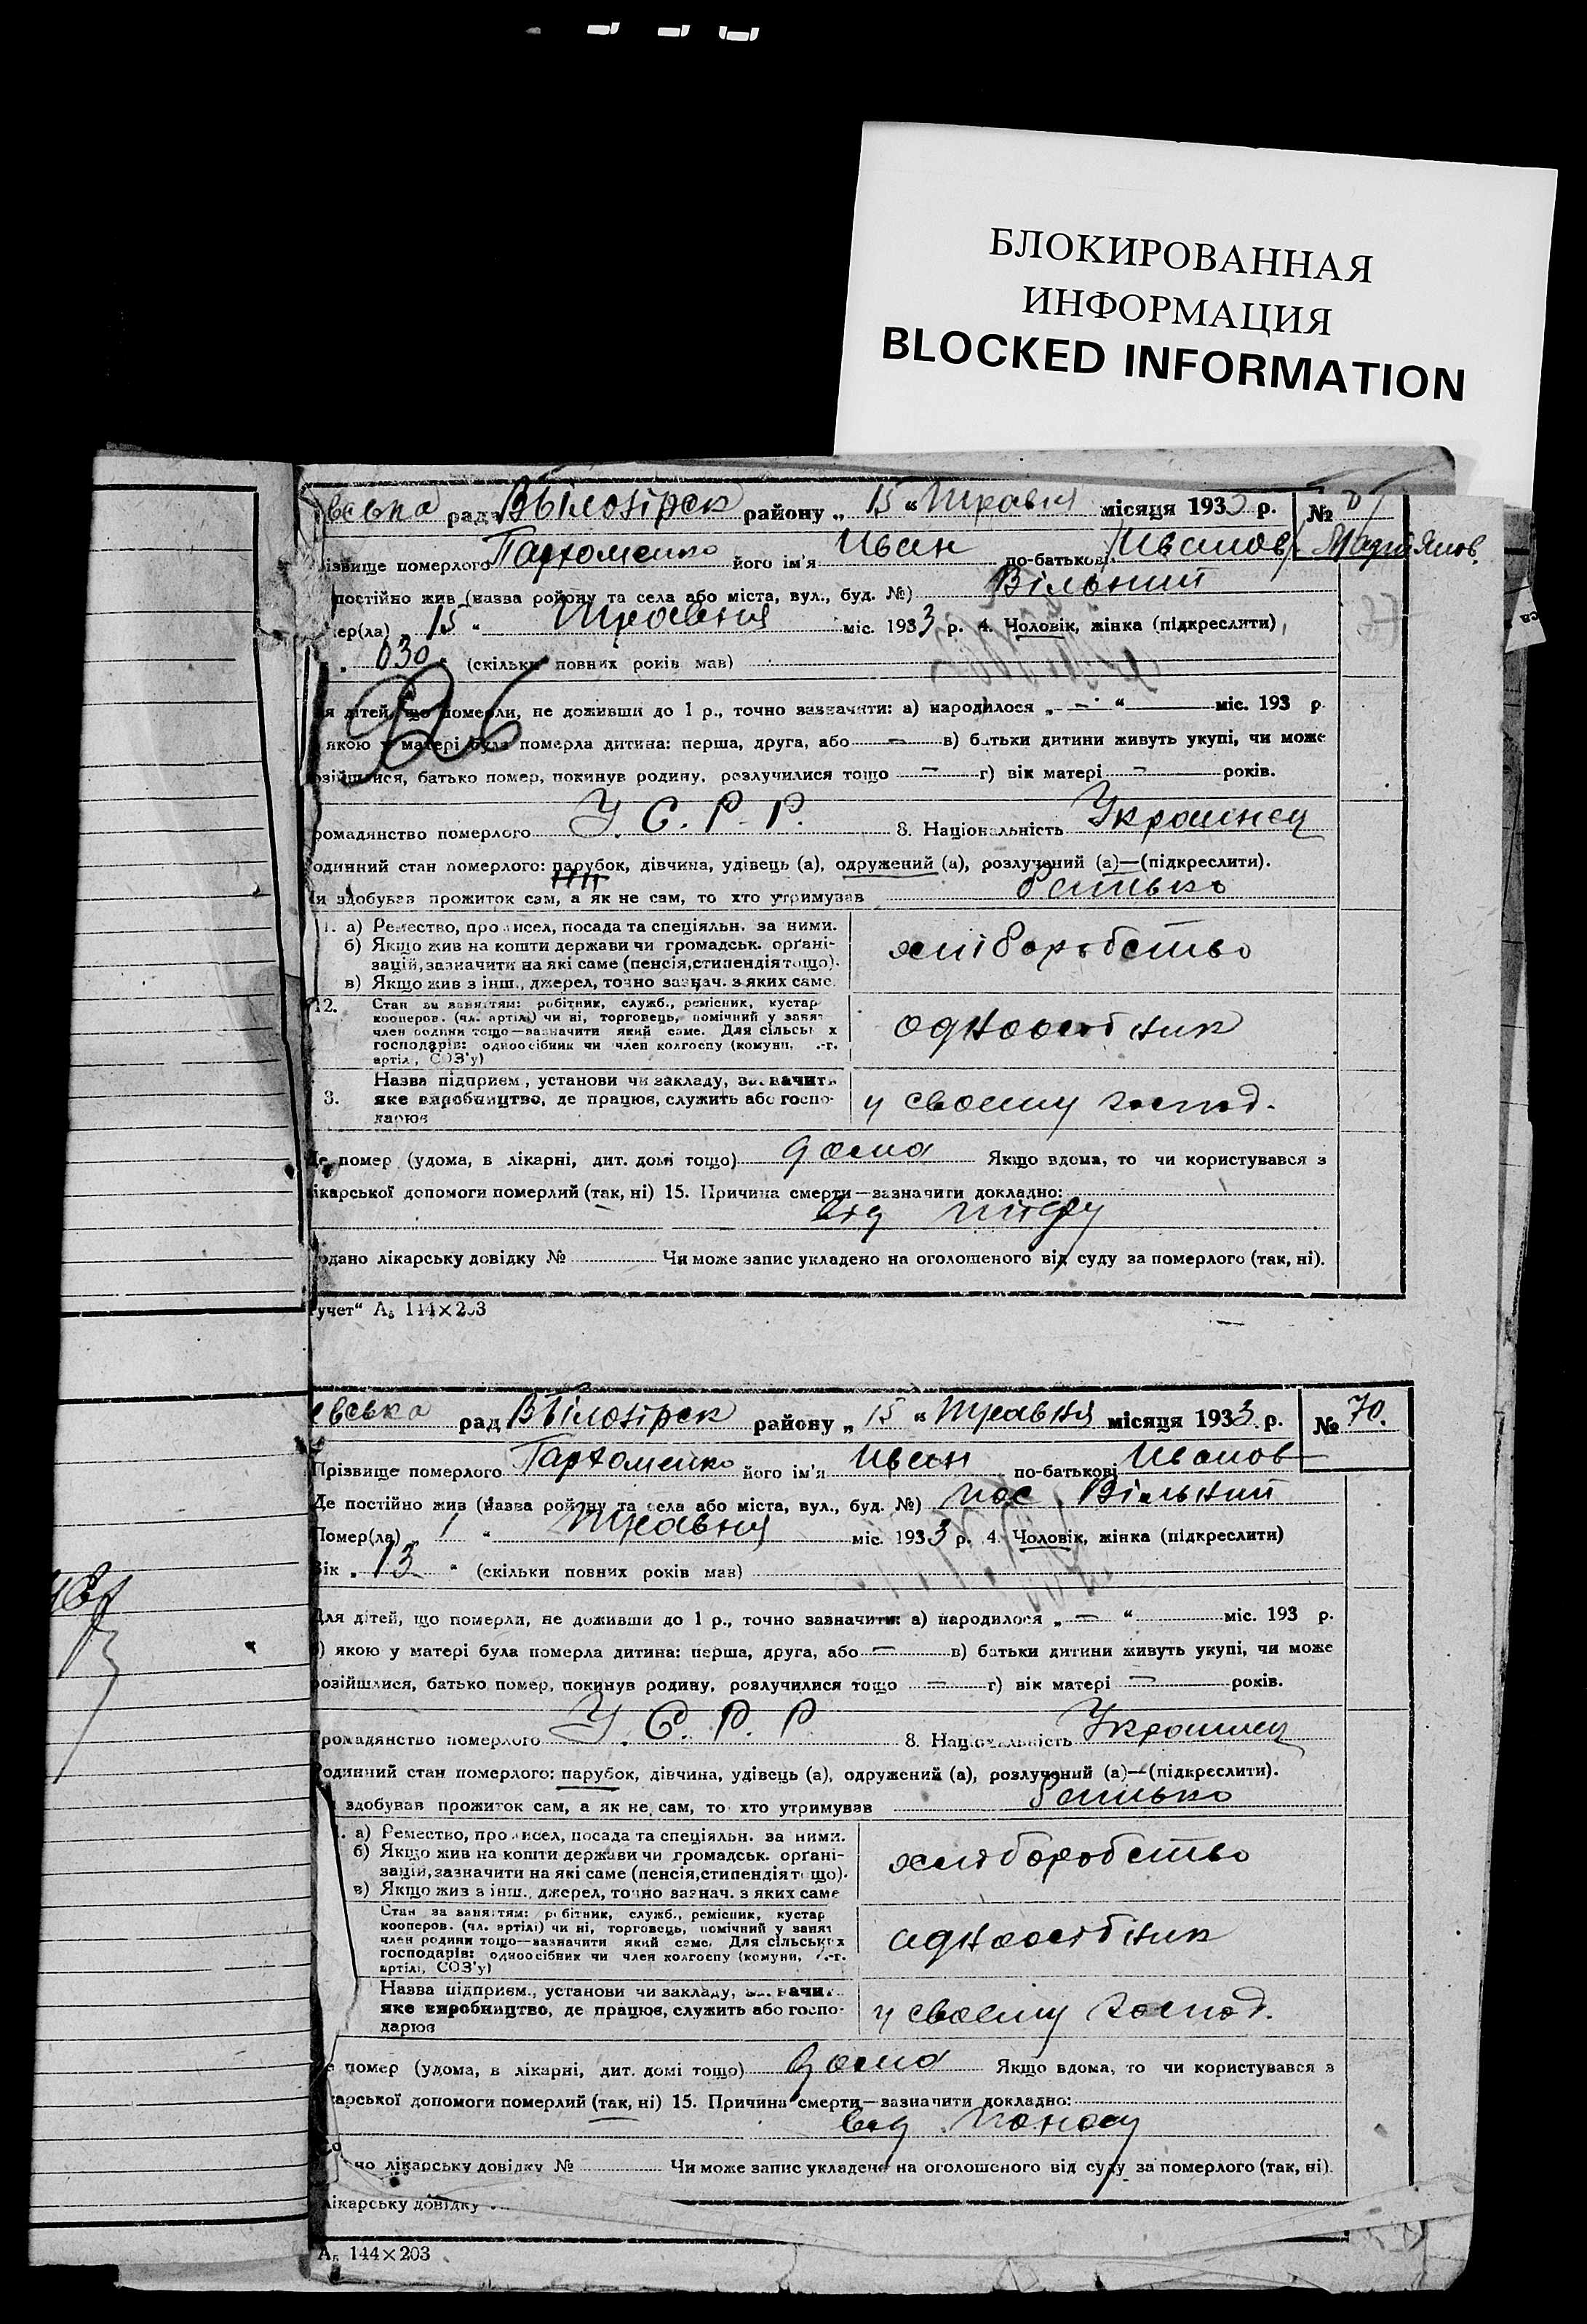 БЛОКИРОВАННАЯ
ИНФОРМАЦИЯ
BLOCKED INFORMATION
рад Вбілозірск району „ 15 “ травня місяця 1933 р. №
ізвище померлого Пархоменко його ім'я Иван по-батькові Иванов
постійно жив (назва ройону та села або міста, вул., буд. №) Вільний
ер(ла) „ 15 “ травня міс. 1933 р. 4. Чоловік, жінка (підкреслити)
030 “ (скільки повних років мав)
я дітей, що померли, не доживши до 1 р., точно зазначити: а) народилося „ — “ міс. 193 р.
якою у матері була померла дитина: перша, друга, або — в) батьки дитини живуть укупі, чи може
озійшлися, батько помер, покинув родину, розлучилися тощо — г) вік матері — років.
ромадянство померлого У. С. Р. Р. 8. Національність Украинец
одинний стан померлого: парубок, дівчина, удівець (а), одружений (а), розлучений (а)—(підкреслити).
и здобував прожиток сам, а як не сам, то хто утримував батько
1. а) Ремество, промисел, посада та спеціяльн. за ними.
б) Якщо жив на кошти держави чи громадськ. орґані-
зацій, зазначити на які саме (пенсія, стипендія тощо).
в) Якщо жив з інш., джерел, точно зазнач. з яких саме.
хліборобство
12. Стан за заняттям: робітник, служб., ремісник, кустар
кооперов. (чл. артілі) чи ні, торговець, помічний у занят
член родини тощо—зазначити який саме. Для сільськ х
господарів: одноосібник чи член колгоспу (комуни, .-г.
артілі, СОЗ'у)
одноосібник
3. Назва підприєм., установи чи закладу, зазначить
яке виробництво, де працює, служить або госпо-
дарює
у своєму господ.
Де помер (удома, в лікарні, дит. домі тощо) дома Якщо вдома, то чи користувався з
ікарської допомоги померлий (так, ні) 15. Причина смерти—зазначити докладно:
від тифу
одано лікарську довідку № Чи може запис укладено на оголошеного від суду за померлого (так, ні).
учет“ А₅ 144×203
евська рад Вбілозірск району „ 15 “ травня місяця 1933 р. № 70.
Прізвище померлого Пархоменко його ім'я Иван по-батькові Иванов
Де постійно жив (назва ройону та села або міста, вул., буд. №) пос. Вільний
Помер(ла) „ 1 “ травня міс. 1933 р. 4. Чоловік, жінка (підкреслити)
Вік „ 13 “ (скільки повних років мав)
Для дітей, що померли, не доживши до 1 р., точно зазначити: а) народилося „ — “ міс. 193 р.
) якою у матері була померла дитина: перша, друга, або — в) батьки дитини живуть укупі, чи може
розійшлися, батько помер, покинув родину, розлучилися тощо — г) вік матері — років.
ромадянство померлого У. С. Р. Р 8. Національність Украинец
Родинний стан померлого: парубок, дівчина, удівець (а), одружений (а), розлучений (а)—(підкреслити).
здобував прожиток сам, а як не сам, то хто утримував батько
. а) Ремество, промисел, посада та спеціяльн. за ними.
б) Якщо жив на кошти держави чи громадськ. орґані-
зацій, зазначити на які саме (пенсія, стипендія тощо).
в) Якщо жив з інш., джерел, точно зазнач. з яких саме
хліборобство
Стан за заняттям: робітник, служб., ремісник, кустар
кооперов. (чл. артілі) чи ні, торговець, помічний у занят
член родини тощо—зазначити який саме. Для сільських
господарів: одноосібник чи член колгоспу (комуни, .-г.
артілі, СОЗ'у)
одноосібник
Назва підприєм., установи чи закладу,
яке виробництво, де працює, служить або госпо-
дарює
у своєму господ.
е помер (удома, в лікарні, дит. домі тощо) дома Якщо вдома, то чи користувався з
карської допомоги померлий (так, ні) 15. Причина смерти—зазначити докладно:
від поносу
но лікарську довідку № Чи може запис укладено на оголошеного від суду за померлого (так, ні).
лікарську довідку
А₅ 144×203